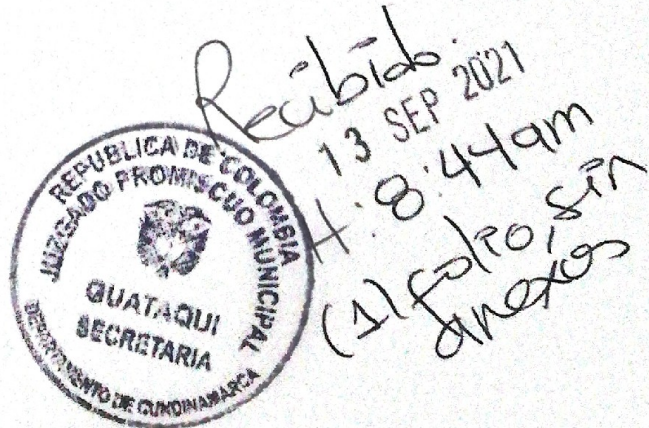 Recibido.
13 SEP 2021
H: 8:44am
(1) folio, sin
anexos
REPUBLICA DE COLOMBIA
JUZGADO PROMISCUO MUNICIPAL
GUATAQUI
SECRETARIA
DEPARTAMENTO DE CUNDINAMARCA